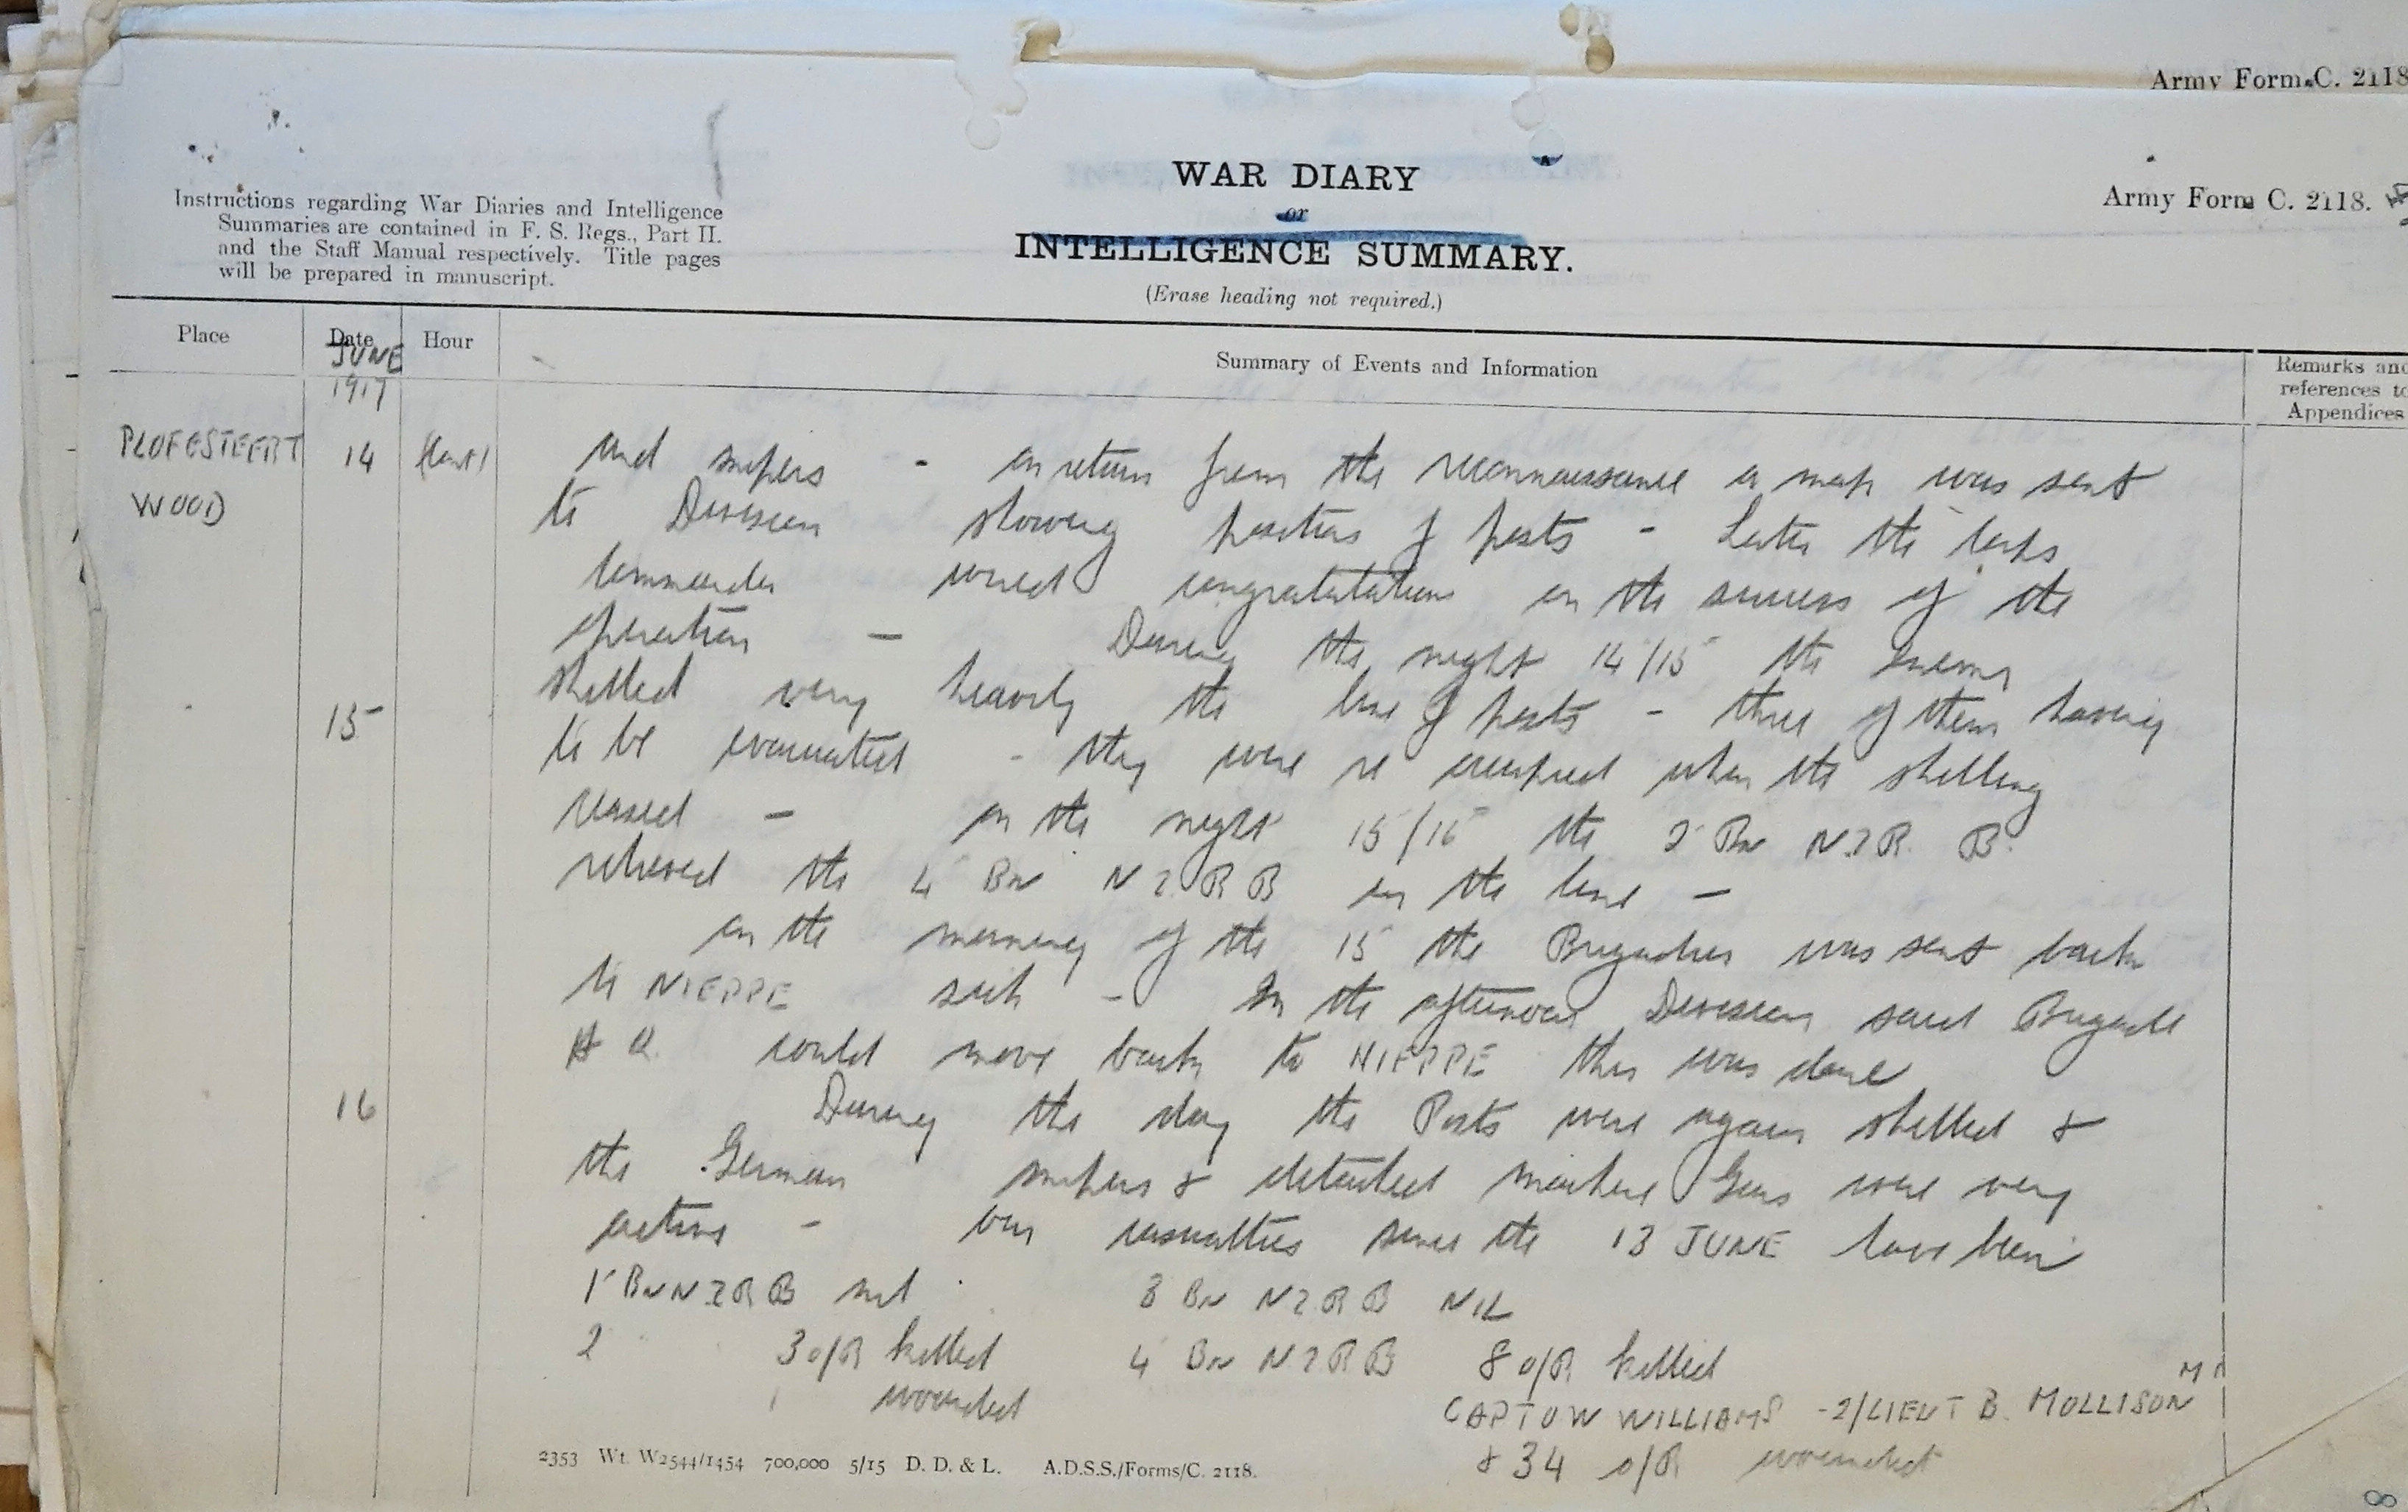 Army Form C. 2118
WAR DIARY
or
INTELLIGENCE SUMMARY.
(Erase heading not required.)
Army Form C. 2118.
Instructions regarding War Diaries and Intelligence
Summaries are contained in F. S. Regs., Part II.
and the Staff Manual respectively. Title pages
will be prepared in manuscript.
Place
Date
Hour
Summary of Events and Information
Remarks and
references to
Appendices
JUNE
1917
PLOEGSTEERT 14 (Cont) and snipers - on return from the reconnaissance a map was sent
WOOD to Division showing positions of posts - Later the Corps
Commander wired congratulations on the success of the
operation — During the night 14/15 the enemy
15 shelled very heavily the line of posts - three of them having
to be evacuated - they were re occupied when the shelling
ceased — on the night 15/16 the 2 Bn N.Z.R. B.
relieved the 4 Bn N Z R B in the line —
on the morning of the 15 the Brigadier was sent back
to NIEPPE sick - In the afternoon Division said Brigade
H Q. could move back to NIEPPE this was done
16 During the day the Posts were again shelled &
the German snipers & detached machine Guns were very
active - Our casualties since the 13 JUNE have been
1 Bn N Z R B nil 3 Bn N Z R B NIL
2 3 o/R killed 4 Bn N Z R B 8 o/R killed
1 wounded CAPT O W WILLIAMS - 2/LIEUT B. MOLLISON
& 34 o/R wounded
2353 Wt. W2544/1454 700,000 5/15 D. D. & L. A.D.S.S./Forms/C. 2118.
8